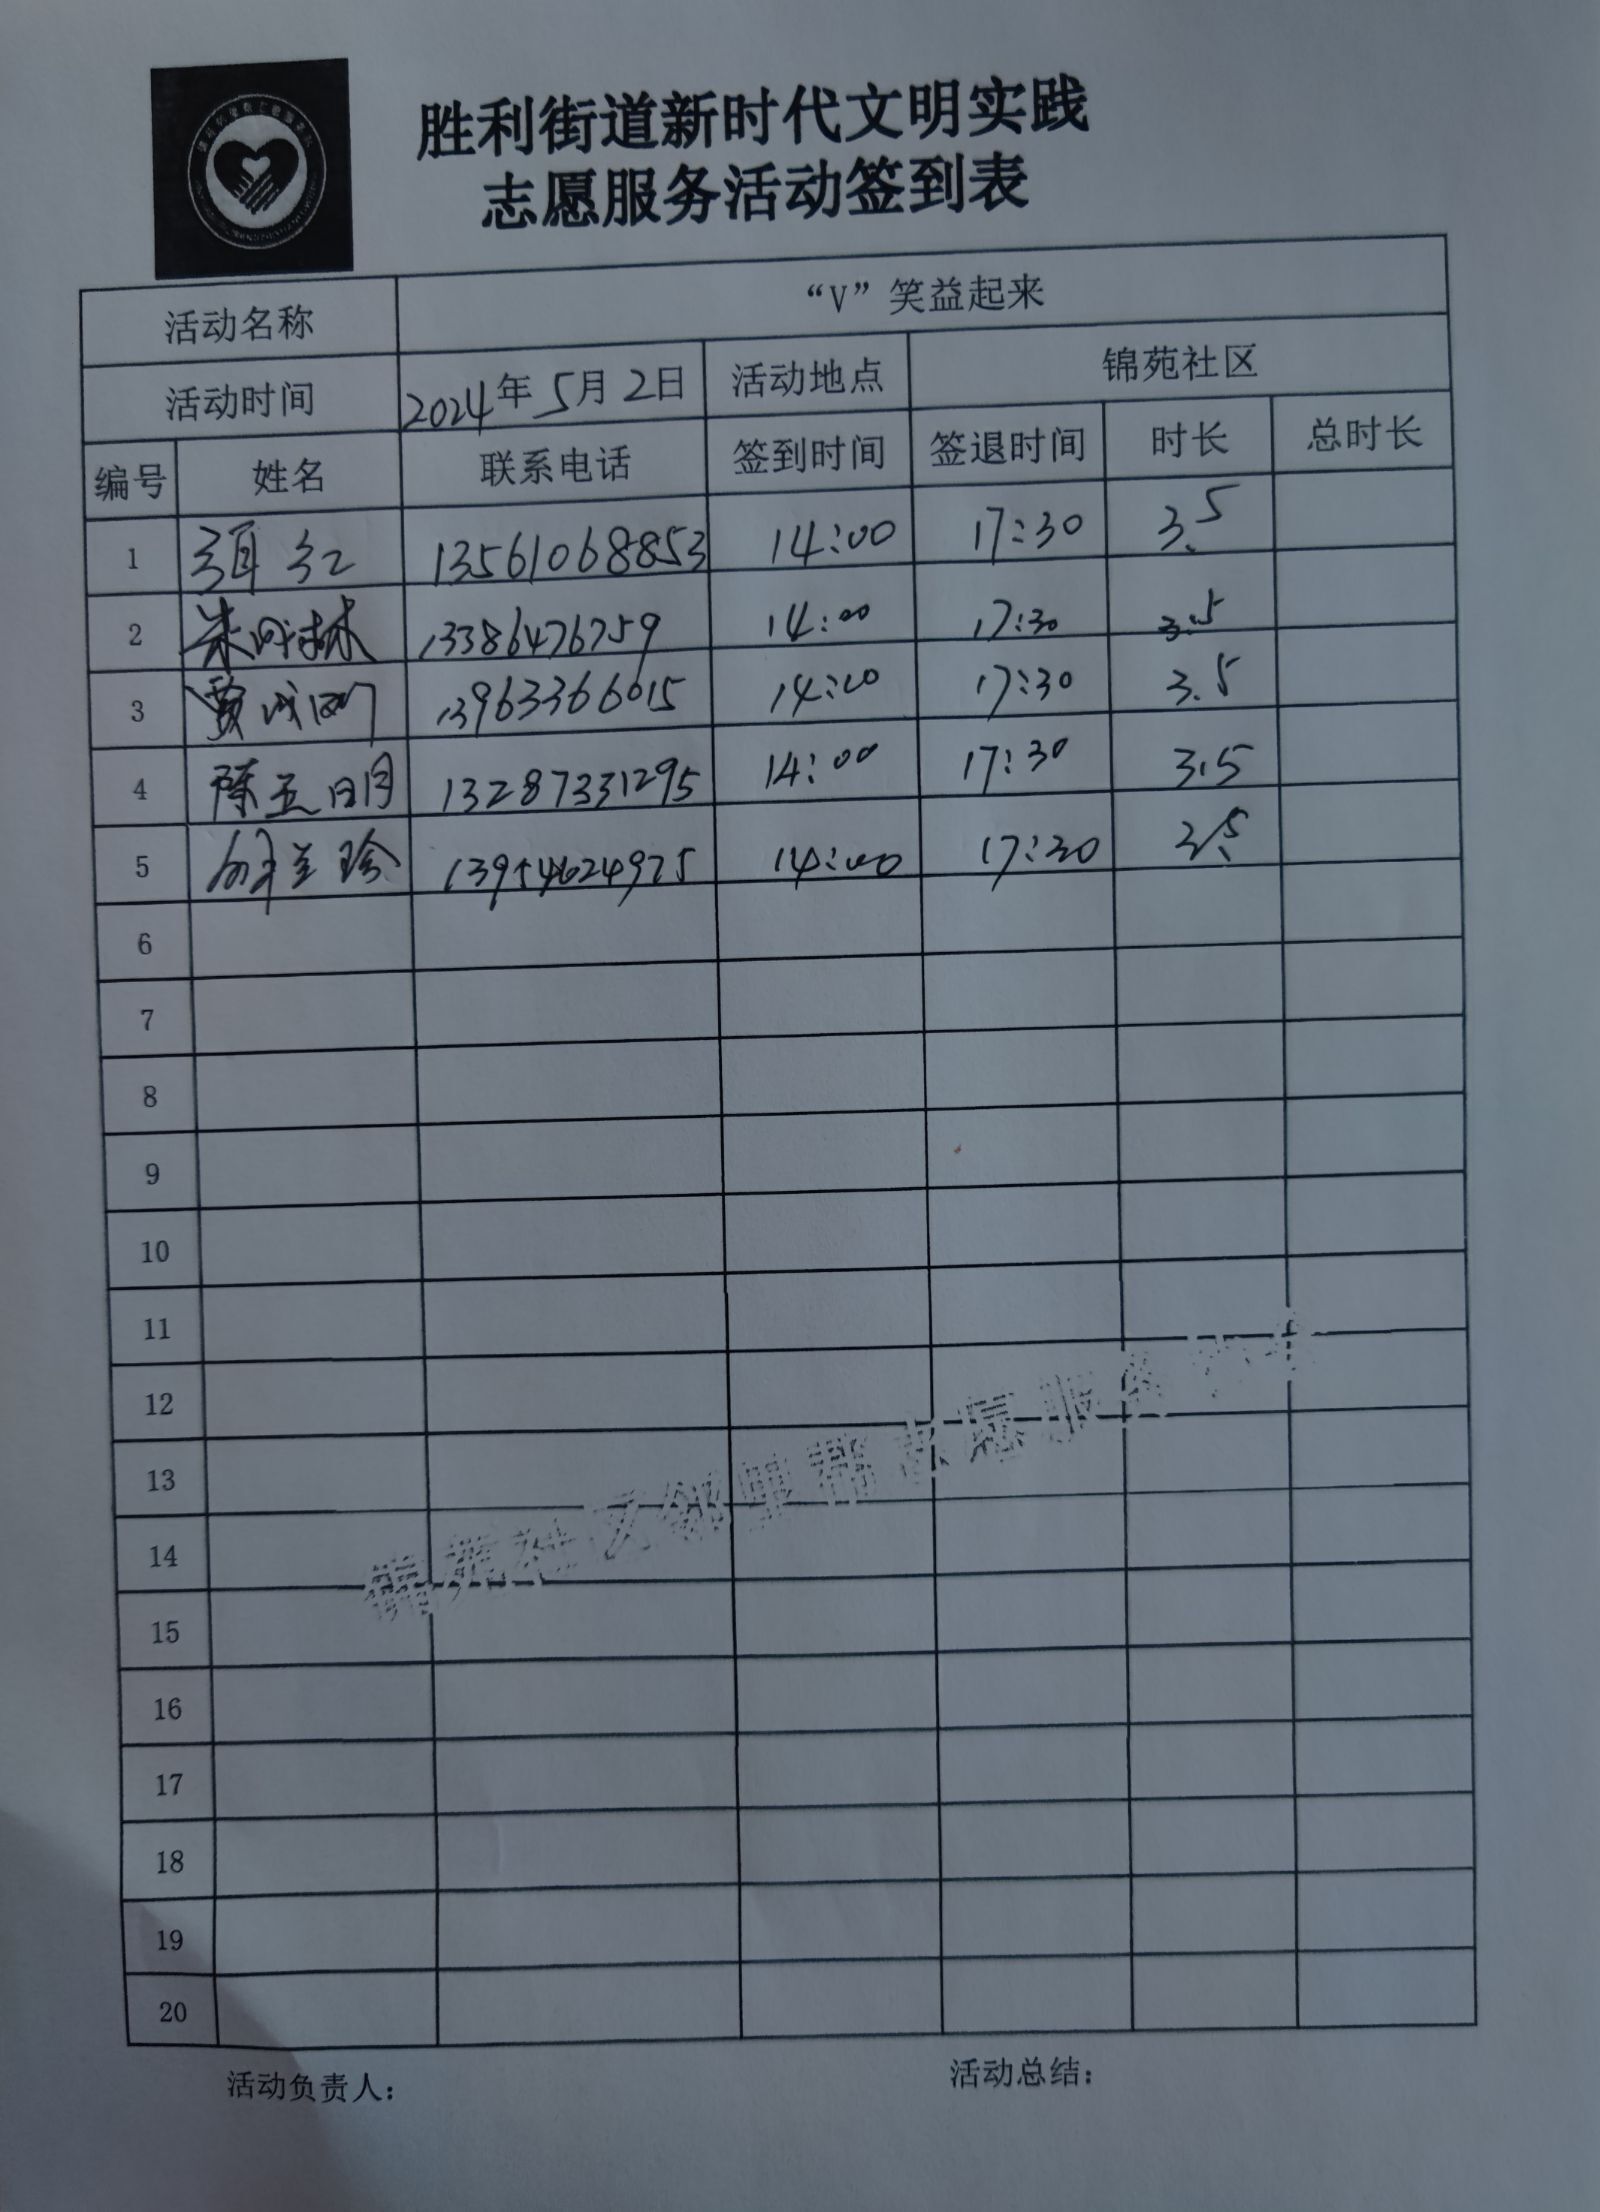 胜利街道新时代文明实践
志愿服务活动签到表
活动名称 “V”笑益起来
活动时间 2024年5月2日 活动地点 锦苑社区
编号 姓名 联系电话 签到时间 签退时间 时长 总时长
1 红 13561068853 14:00 17:30 3.5
2 朱 林 13386476759 14:00 17:30 3.5
3 贾成刚 13963366015 14:00 17:30 3.5
4 陈玉明 13287331295 14:00 17:30 3.5
5 兰珍 13954624975 14:00 17:30 3.5
6
7
8
9
10
11
12
13
14
15
16
17
18
19
20
锦苑社区邻里帮志愿服务
活动负责人：
活动总结：